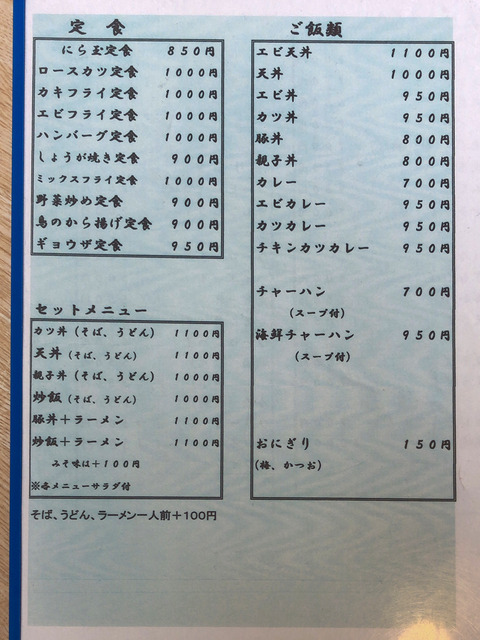 定食
にら玉定食 850円
ロースカツ定食 1000円
カキフライ定食 1000円
エビフライ定食 1000円
ハンバーグ定食 1000円
しょうが焼き定食 900円
ミックスフライ定食 1000円
野菜炒め定食 900円
鳥のから揚げ定食 900円
ギョウザ定食 950円
セットメニュー
カツ丼(そば、うどん) 1100円
天丼(そば、うどん) 1100円
親子丼(そば、うどん) 1000円
炒飯(そば、うどん) 1000円
豚丼+ラーメン 1100円
炒飯+ラーメン 1100円
みそ味は+100円
※各メニューサラダ付
そば、うどん、ラーメン一人前+100円
ご飯類
エビ天丼 1100円
天丼 1000円
エビ丼 950円
カツ丼 950円
豚丼 800円
親子丼 800円
カレー 700円
エビカレー 950円
カツカレー 950円
チキンカツカレー 950円
チャーハン 700円
(スープ付)
海鮮チャーハン 950円
(スープ付)
おにぎり 150円
(梅、かつお)